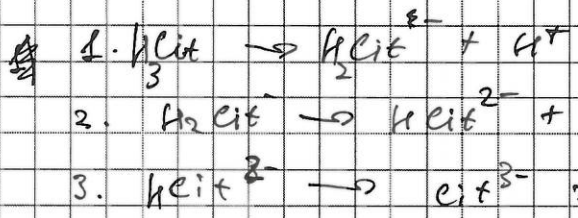 1. H₃Cit → H₂Cit⁻ + H⁺
2. H₂Cit⁻ → HCit²⁻ +
3. HCit²⁻ → Cit³⁻